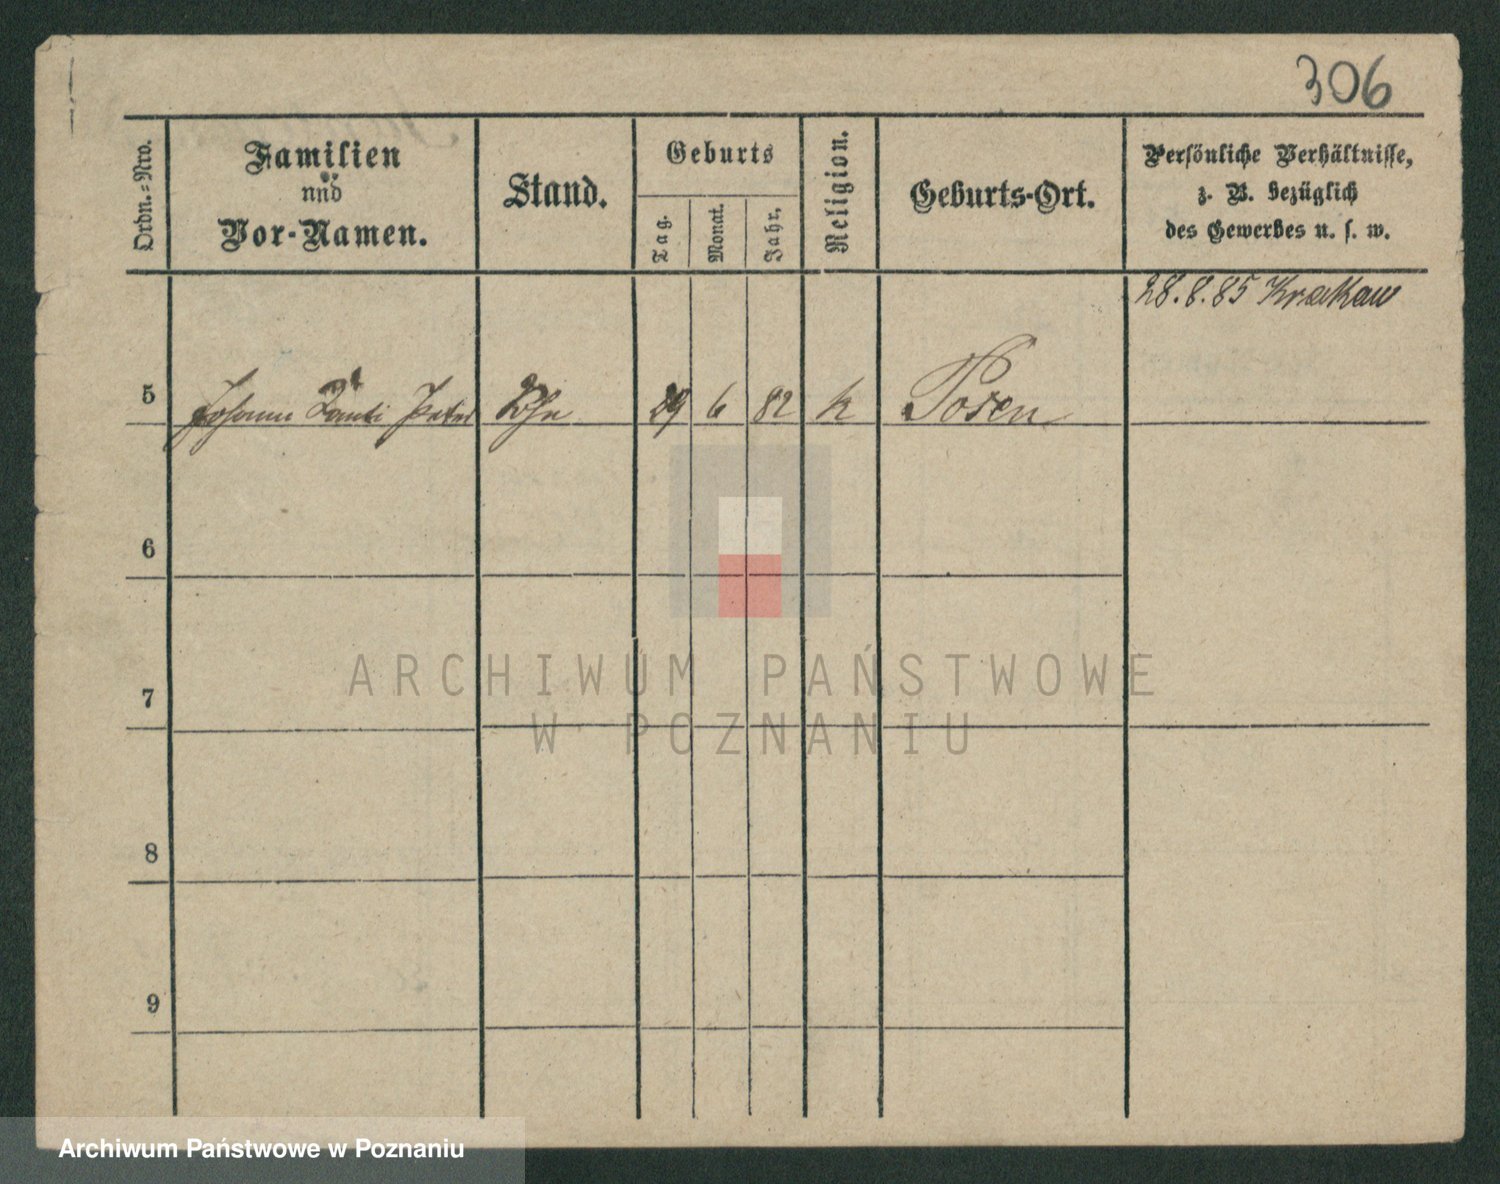 306
Ordn.-Nro.
Familien
und
Vor-Namen.
Stand.
Geburts
Tag.
Monat.
Jahr.
Religion.
Geburts-Ort.
Persönliche Verhältnisse,
z. B. bezüglich
des Gewerbes u. s. w.
28.8.85 Krakau
5 Johann Kanti Peter Sohn 29 6 82 k Posen
6
7
8
9
ARCHIWUM PAŃSTWOWE
W POZNANIU
Archiwum Państwowe w Poznaniu